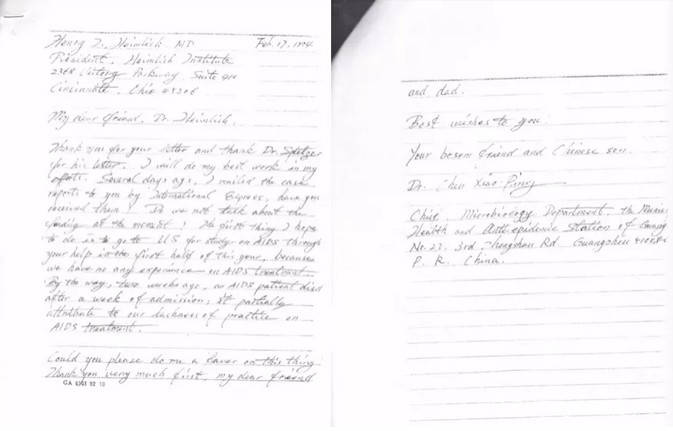 Henry J. Heimlich MD Feb. 17, 1994
President, Heimlich Institute
2368 Victory Parkway Suite 410
Cincinnati, Ohio 45206
My dear friend, Dr. Heimlich:
Thank you for your letter and thank Dr. Spitzer
for his letter. I will do my best work in my
efforts. Several days ago, I mailed the case
reports to you by International Express, have you
received them? Do we not talk about the
funding at the moment! The first thing I hope
to do is to go to U.S for study on AIDS through
your help in the first half of this year, because
we have no any experience on AIDS treatment.
By the way, two weeks ago, an AIDS patient died
after a week of admission; It partially
attribute to our lackness of practice on
AIDS treatment.
Could you please do me a favor on this thing
Thank you very much first, my dear friend
and dad.
Best wishes to you.
Your bosom friend and Chinese son.
Dr. Chen Xiao Ping
Chief, Microbiology Department, the
Health and Antiepidemic Station of
No. 23. 3rd Zhongshan Rd. Guangzhou
P. R. China.